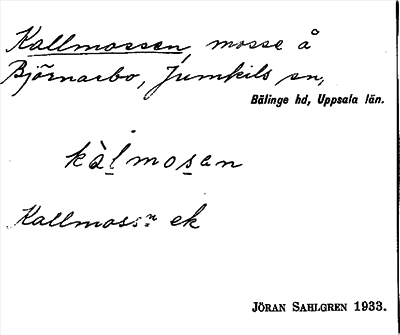 Kallmossen, mosse å
Björnarbo, Jumkils sn,
Bälinge hd, Uppsala län.
kàl̲mos̲an
Kallmoss:ⁿ ek
JÖRAN SAHLGREN 1933.